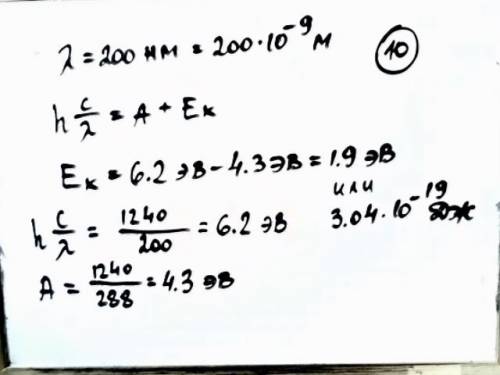 λ = 200 нм = 200·10⁻⁹ м
10
h c/λ = A + Eк
Eк = 6.2 эв - 4.3 эв = 1.9 эв
или
3.04·10⁻¹⁹ Дж
h c/λ = 1240/200 = 6.2 эв
A = 1240/288 = 4.3 эв